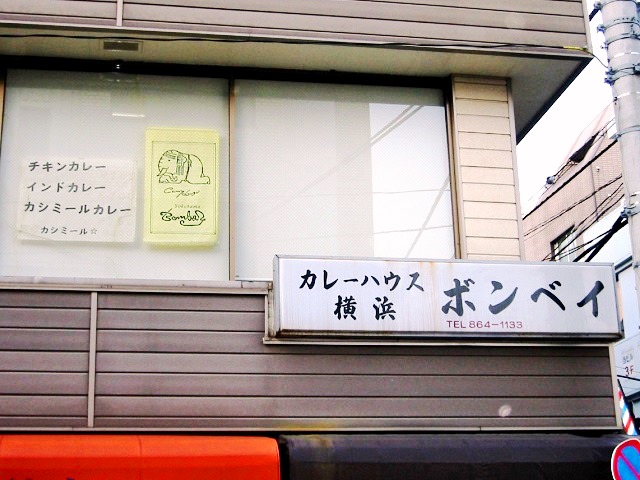 チキンカレー
インドカレー
カシミールカレー
カシミール☆
カレーハウス
横浜
ボンベイ
TEL 864-1133
3F